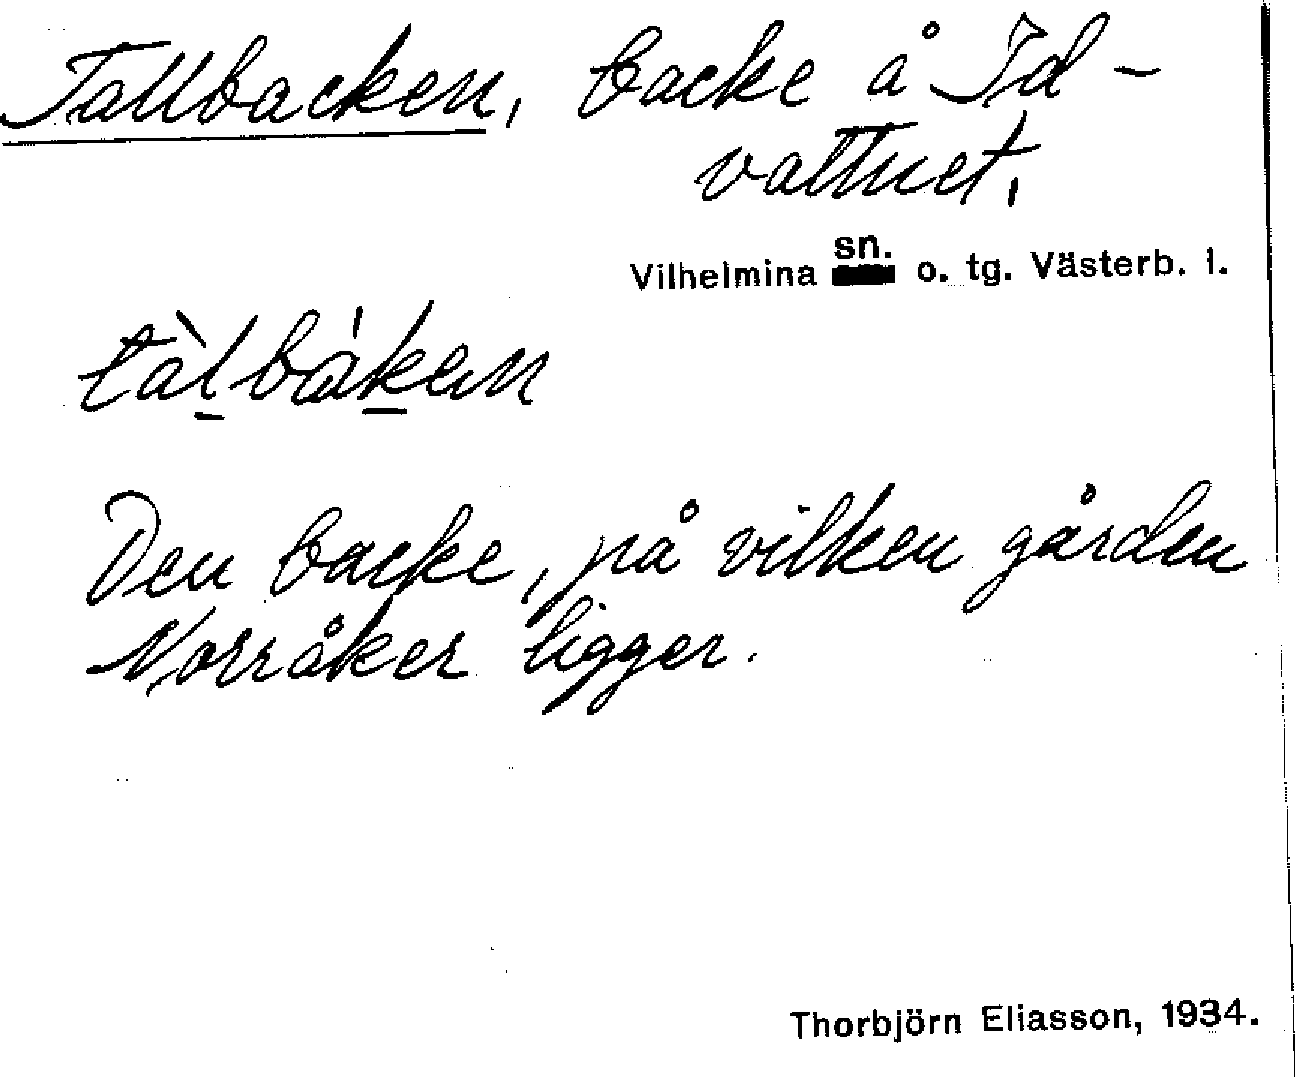 Tallbacken, backe å Id-
vattnet.
Vilhelmina sn. o. tg. Västerb. l.
tàl̠bák̠en
Den backe, på vilken gården
Norråker ligger.
Thorbjörn Eliasson, 1934.